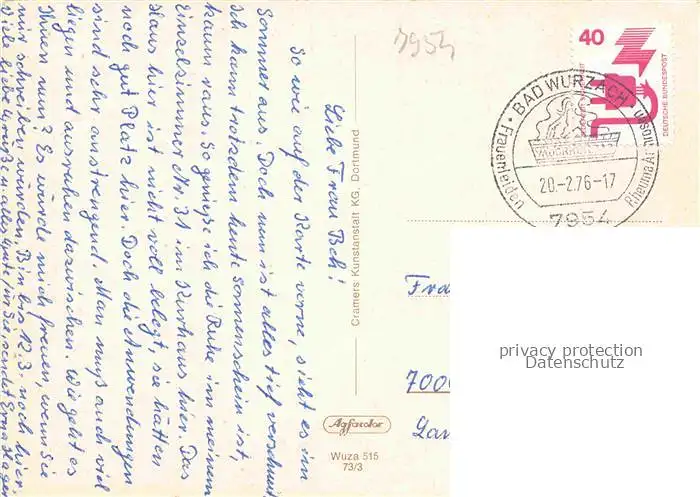 Liebe Frau Boh!
So wie auf der Karte vorne, sieht es im
Sommer aus. Doch nun ist alles tief verschneit
Ich kann trotzdem heute Sonnenschein ist,
kaum raus. So genieße ich die Ruhe in meinem
Einzelzimmer Nr. 31 im Kurhaus hier. Das
Haus hier ist nicht voll belegt, sie hätten
noch gut Platz hier. Doch die Anwendungen
sind sehr anstrengend. Man muß auch viel
liegen und ausruhen dazwischen. Wie geht es
Ihnen nun? Es würde mich freuen, wenn Sie
mir schreiben würden. Bin bis 12.3. noch hier.
Viele liebe Grüße u. alles Gute für Sie, sendet Erna
Cramers Kunstanstalt KG, Dortmund
Agfacolor
Wuza 515
73/3
7954
40
DEUTSCHE BUNDESPOST
BAD WURZACH
Frauenleiden
Rheuma
20.-2.76-17
7954
Fra
7000
privacy protection
Datenschutz